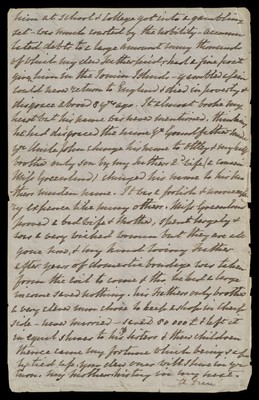 him at school & College got into a gambling
set - was much courted by the nobility - accumu
lated debt to a large amount many thousands
of which my dear father paid, had a fine post
given him in the Ionian Islands - gambled again
could never return to England & died in poverty &
disgrace about 8 yrs ago. It almost broke my
heart but his name was never mentioned. Thinking
he had disgraced the name Yr Grandfather and
Yr Uncle John change his name to Ottley & my half
brother only son by my father's 2d wife (a cousin
Miss Greenland) changed his name to his
ther maiden name. It was a foolish & unnecessa
ry expence like many others. Miss Greenland
proved a bad wife & Mother, spent largely &
was a very wicked woman but they are all
gone now, & my kind loving father
after years of domestic bondage was taken
from the evil to come & tho he had a large
income saved nothing. his father's only brother
a very clever man chose to keep a shop in Cheap
side - never married - saved 80 000 £ left it
in equal shares to his sisters & their children
thence came my fortune which being safe
ly tied up, you dear ones will share in yr
turn. my mother's history in my next -